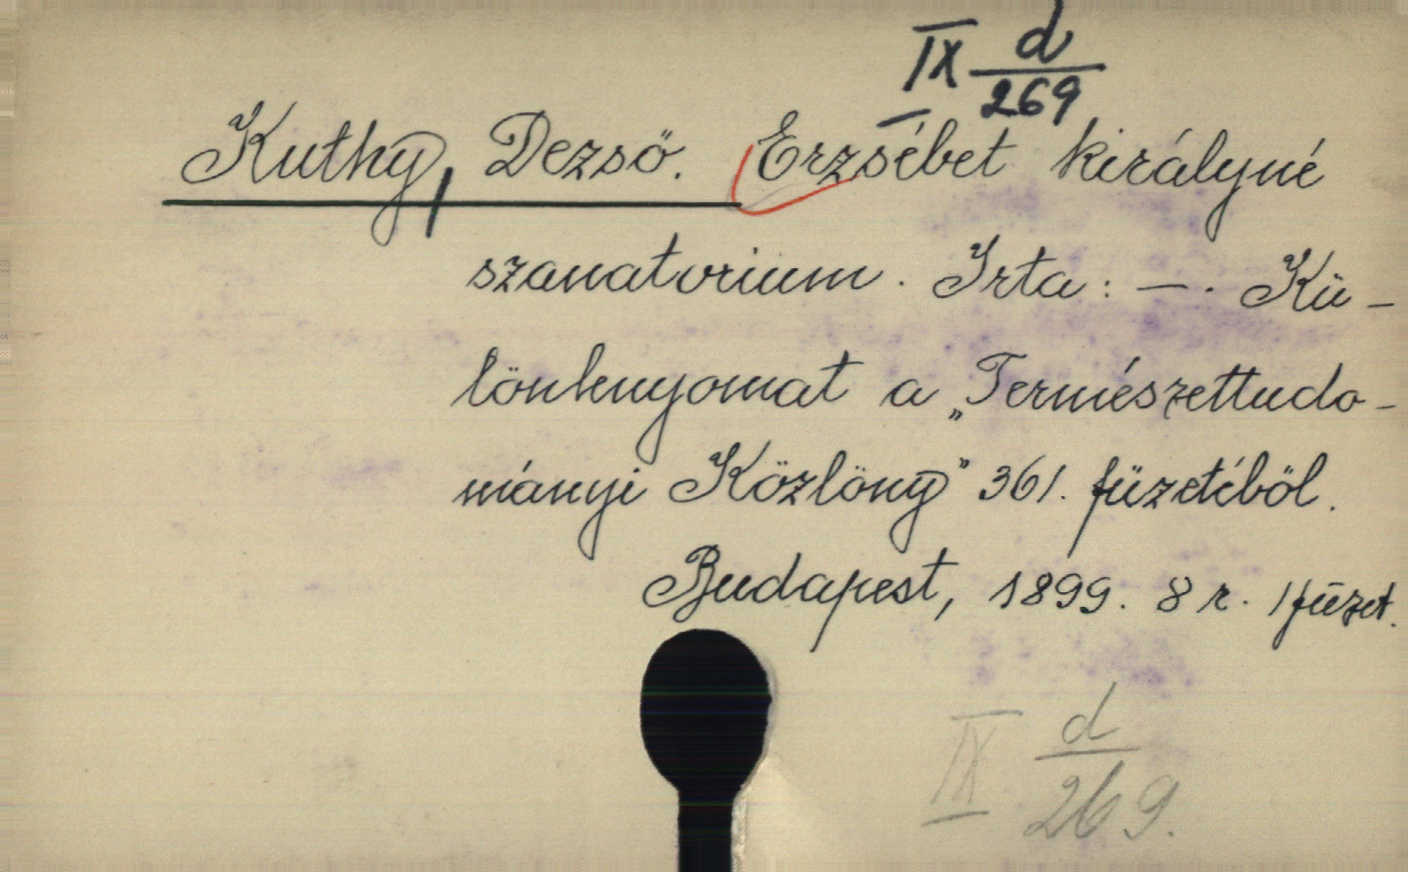 IX d/269
Kuthy, Dezső. Erzsébet királyné
szanatorium. Irta: —. Kü-
lönlenyomat a „Természettudo-
mányi Közlöny” 361. füzetéből.
Budapest, 1899. 8 r. 1 füzet.
IX d/269.